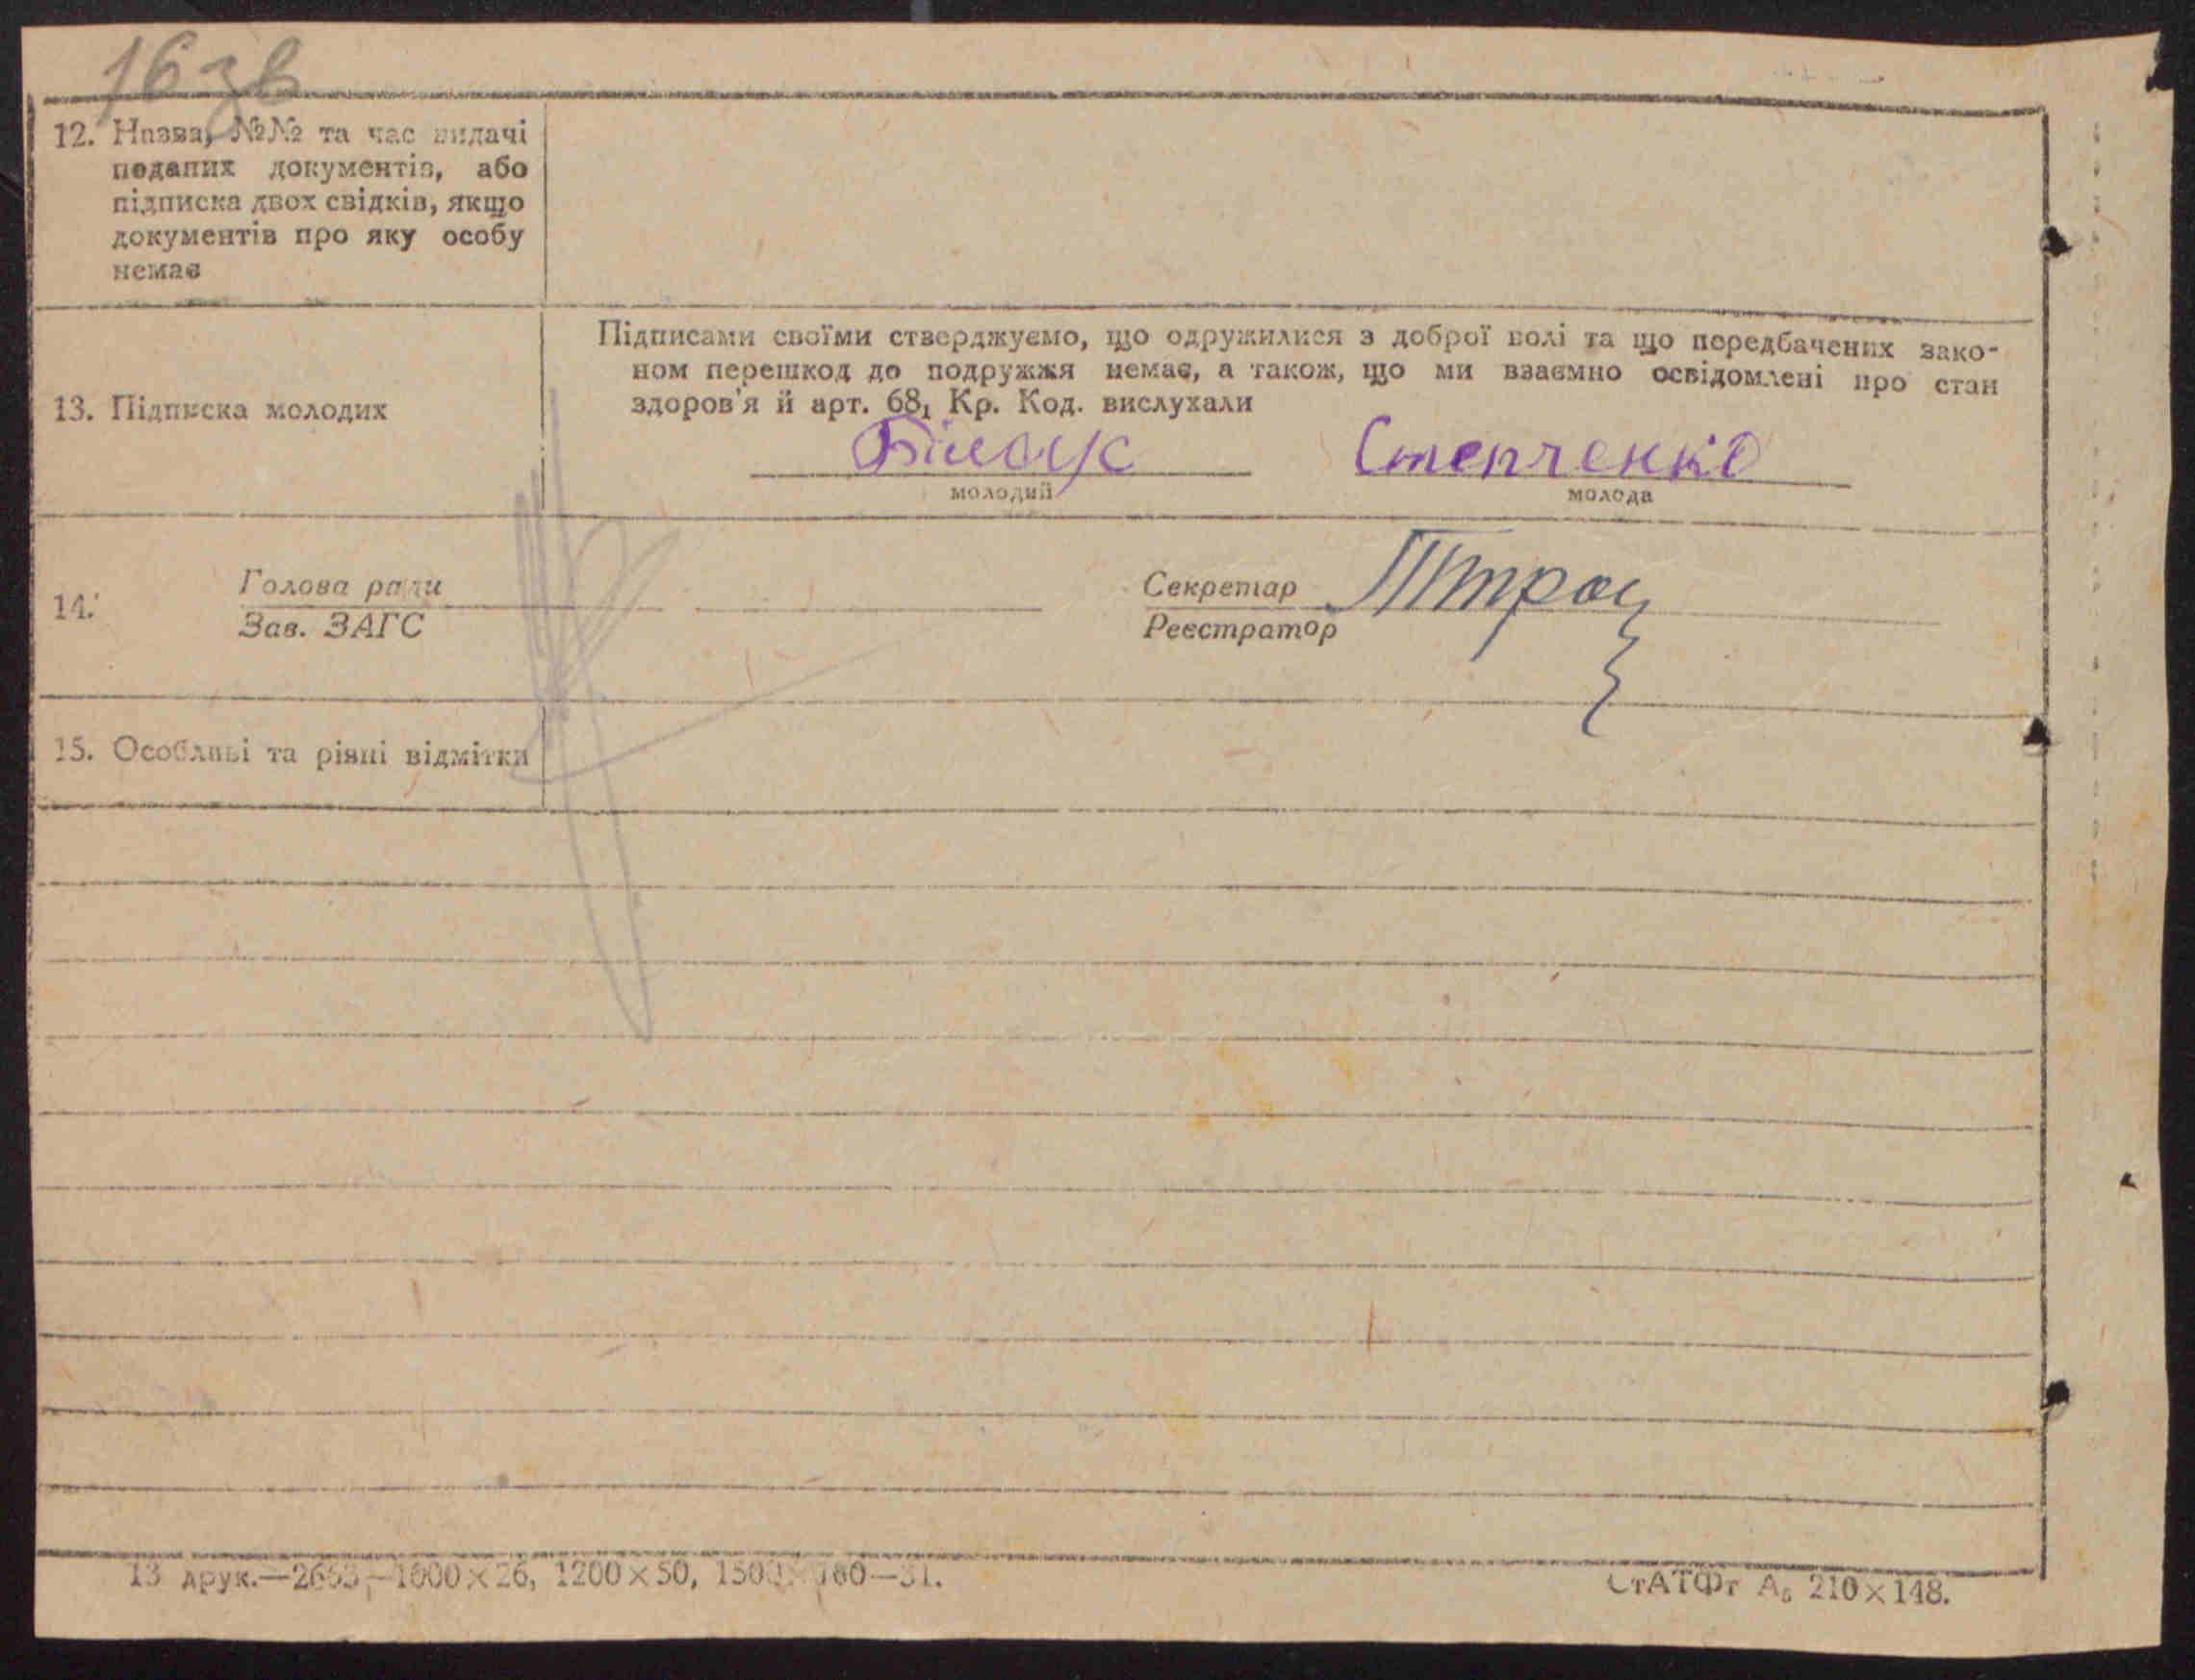 16зв
12. Назва, №№ та час видачі
поданих документів, або
підписка двох свідків, якщо
документів про яку особу
немає
Підписами своїми стверджуємо, що одружилися з доброї волі та що передбачених зако-
ном перешкод до подружжя немає, а також, що ми взаємно освідомлені про стан
здоров'я й арт. 68₁ Кр. Код. вислухали
13. Підписка молодих
Степченко
молодий
молода
14.
Голова ради
Зав. ЗАГС
Секретар
Реєстратор
15. Особливі та різні відмітки
13 друк.—2653,—1000×26, 1200×50,
СтАТФт А₅ 210×148.